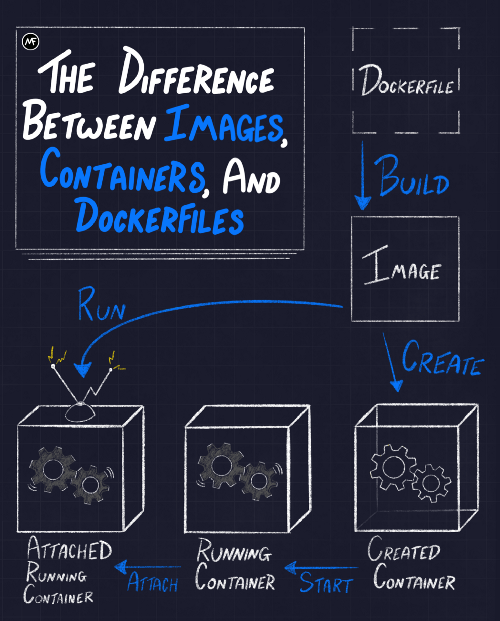 MF
THE DIFFERENCE
BETWEEN IMAGES,
CONTAINERS, AND
DOCKERFILES
DOCKERFILE
BUILD
IMAGE
RUN
CREATE
ATTACHED
RUNNING
CONTAINER
ATTACH
RUNNING
CONTAINER
START
CREATED
CONTAINER